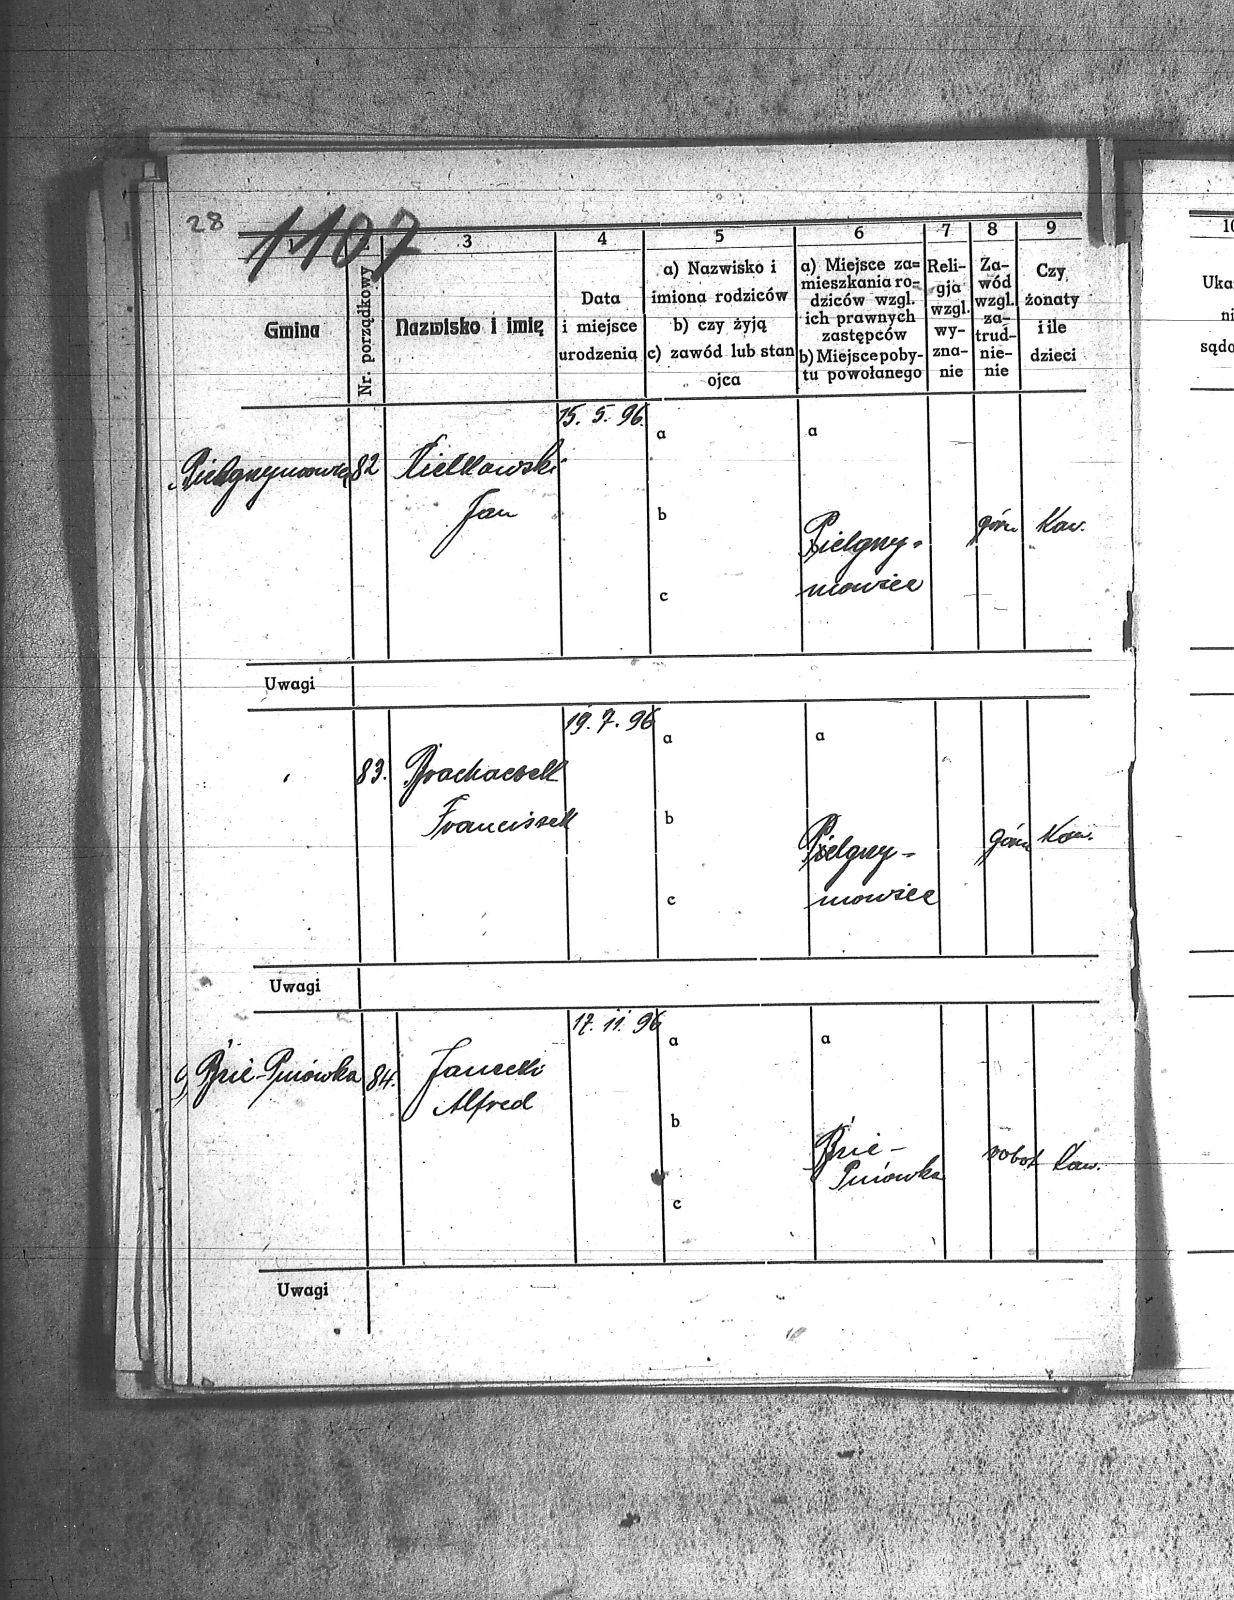 28
1107
1 2 3 4 5 6 7 8 9 10
Gmina
Nr. porządkowy
Nazwisko i imię
Data
i miejsce
urodzenia
a) Nazwisko i
imiona rodziców
b) czy żyją
c) zawód lub stan
ojca
a) Miejsce za=
mieszkania ro=
dziców wzgl.
ich prawnych
zastępców
b) Miejsce poby-
tu powołanego
Reli-
gja
wzgl.
wy-
zna-
nie
Za-
wód
wzgl.
za-
trud-
nie-
nie
Czy
żonaty
i ile
dzieci
Uka
ni
sądo
15. 5. 96.
a
a
82
Kielkowski
Jan
b
Pielgrzy-
mowice
górn
Kaw.
c
Uwagi
19. 7. 96
a
a
83.
Brachaczek
Franciszek
b
Pielgrzy-
mowice
górn
Kaw.
c
Uwagi
17. 11. 96
a
a
Brie-Pniówka
84.
Janecki
Alfred
b
Brie-
Pniówka
robot
Kaw.
c
Uwagi